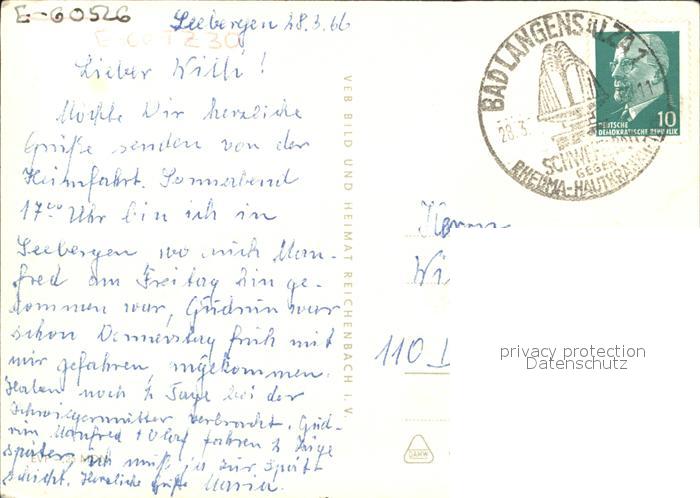 E-60526
Seebergen 28.3.66
Lieber Willi!
Möchte Dir herzliche
Grüße senden von der
Heimfahrt. Sonnabend
17⁰⁰ Uhr bin ich in
Seebergen wo mich Man-
fred am Freitag hin ge-
kommen war, Gudrun war
schon Donnerstag früh mit
mir gefahren angekommen.
Haben noch ½ Tage bei der
Schwiegermutter verbracht. Gud-
run Manfred + Olaf fahren
später, ich muß ja zur Spät-
schicht. Herzliche Grüße Maria.
VEB BILD UND HEIMAT REICHENBACH I. V.
BAD LANGENSALZA 1
28.3.
SCHWEFELBAD
GEGEN
RHEUMA-HAUTKRANKH
10
DEUTSCHE
DEMOKRATISCHE REPUBLIK
Herrn
Wi
110
privacy protection
Datenschutz
DAMW